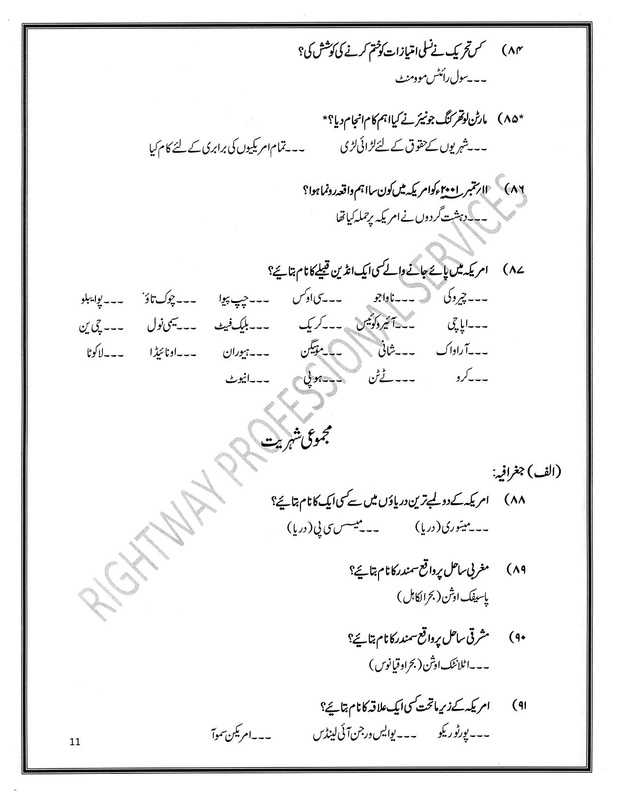 ۸۴) کس تحریک نے نسلی امتیازات کو ختم کرنے کی کوشش کی؟
---سول رائٹس موومنٹ
*۸۵) مارٹن لوتھر کنگ جونیئر نے کیا اہم کام انجام دیا؟*
---شہریوں کے حقوق کے لئے لڑائی لڑی ---تمام امریکیوں کی برابری کے لئے کام کیا
۸۶) ۱۱/ستمبر ۲۰۰۱ء کو امریکہ میں کون سا اہم واقعہ رونما ہوا؟
---دہشت گردوں نے امریکہ پر حملہ کیا تھا
۸۷) امریکہ میں پائے جانے والے کسی ایک انڈین قبیلے کا نام بتائیے؟
---چیروکی ---ناواجو ---سی اوکس ---چپ پیوا ---چوک تاؤ ---پوایبلو
---اپاچی ---آئیروکوئیس ---کریک ---بلیک فیٹ ---سیمی نول ---چی ین
---آراواک ---شانی ---موہیگن ---ہیوران ---اونائیڈا ---لاکوٹا
---کرو ---ٹے ٹن ---ہوپی ---انیوٹ
مجموعی شہریت
(الف) جغرافیہ:
۸۸) امریکہ کے دو لمبے ترین دریاؤں میں سے کسی ایک کا نام بتائیے؟
---میسوری (دریا) ---میسس سی پی (دریا)
۸۹) مغربی ساحل پر واقع سمندر کا نام بتائیے؟
پاسیفک اوشن (بحر الکاہل)
۹۰) مشرقی ساحل پر واقع سمندر کا نام بتائیے؟
---اٹلانٹک اوشن (بحر اوقیانوس)
۹۱) امریکہ کے زیر ماتحت کسی ایک علاقہ کا نام بتائیے؟
---پورٹو ریکو ---یو ایس ورجن آئی لینڈس ---امریکن سموآ
11
RIGHTWAY PROFESSIONAL SERVICES